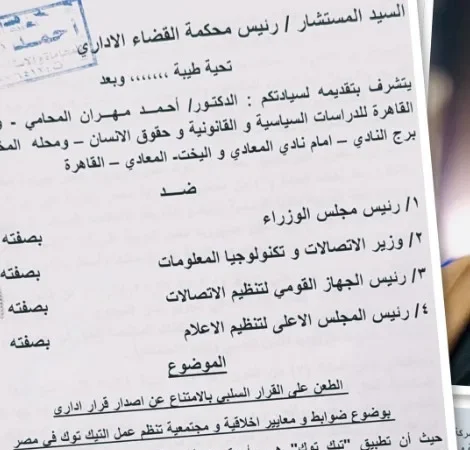 السيد المستشار / رئيس محكمة القضاء الاداري
تحية طيبة ،،،،،،، وبعد
يتشرف بتقديمه لسيادتكم : الدكتور/ أحمد مهران المحامي -
القاهرة للدراسات السياسية و القانونية و حقوق الانسان – ومحله
برج النادي – امام نادي المعادي و اليخت- المعادي – القاهرة
ضـــد
١/ رئيس مجلس الوزراء
بصفته
٢/ وزير الاتصالات و تكنولوجيا المعلومات
بصفته
٣/ رئيس الجهاز القومي لتنظيم الاتصالات
بصفته
٤/ رئيس المجلس الاعلى لتنظيم الاعلام
بصفته
الموضوع
الطعن على القرار السلبي بالامتناع عن اصدار قرار اداري
بوضوع ضوابط و معايير اخلاقية و مجتمعية تنظم عمل التيك توك في مصر
حيث أن تطبيق "تيك توك"